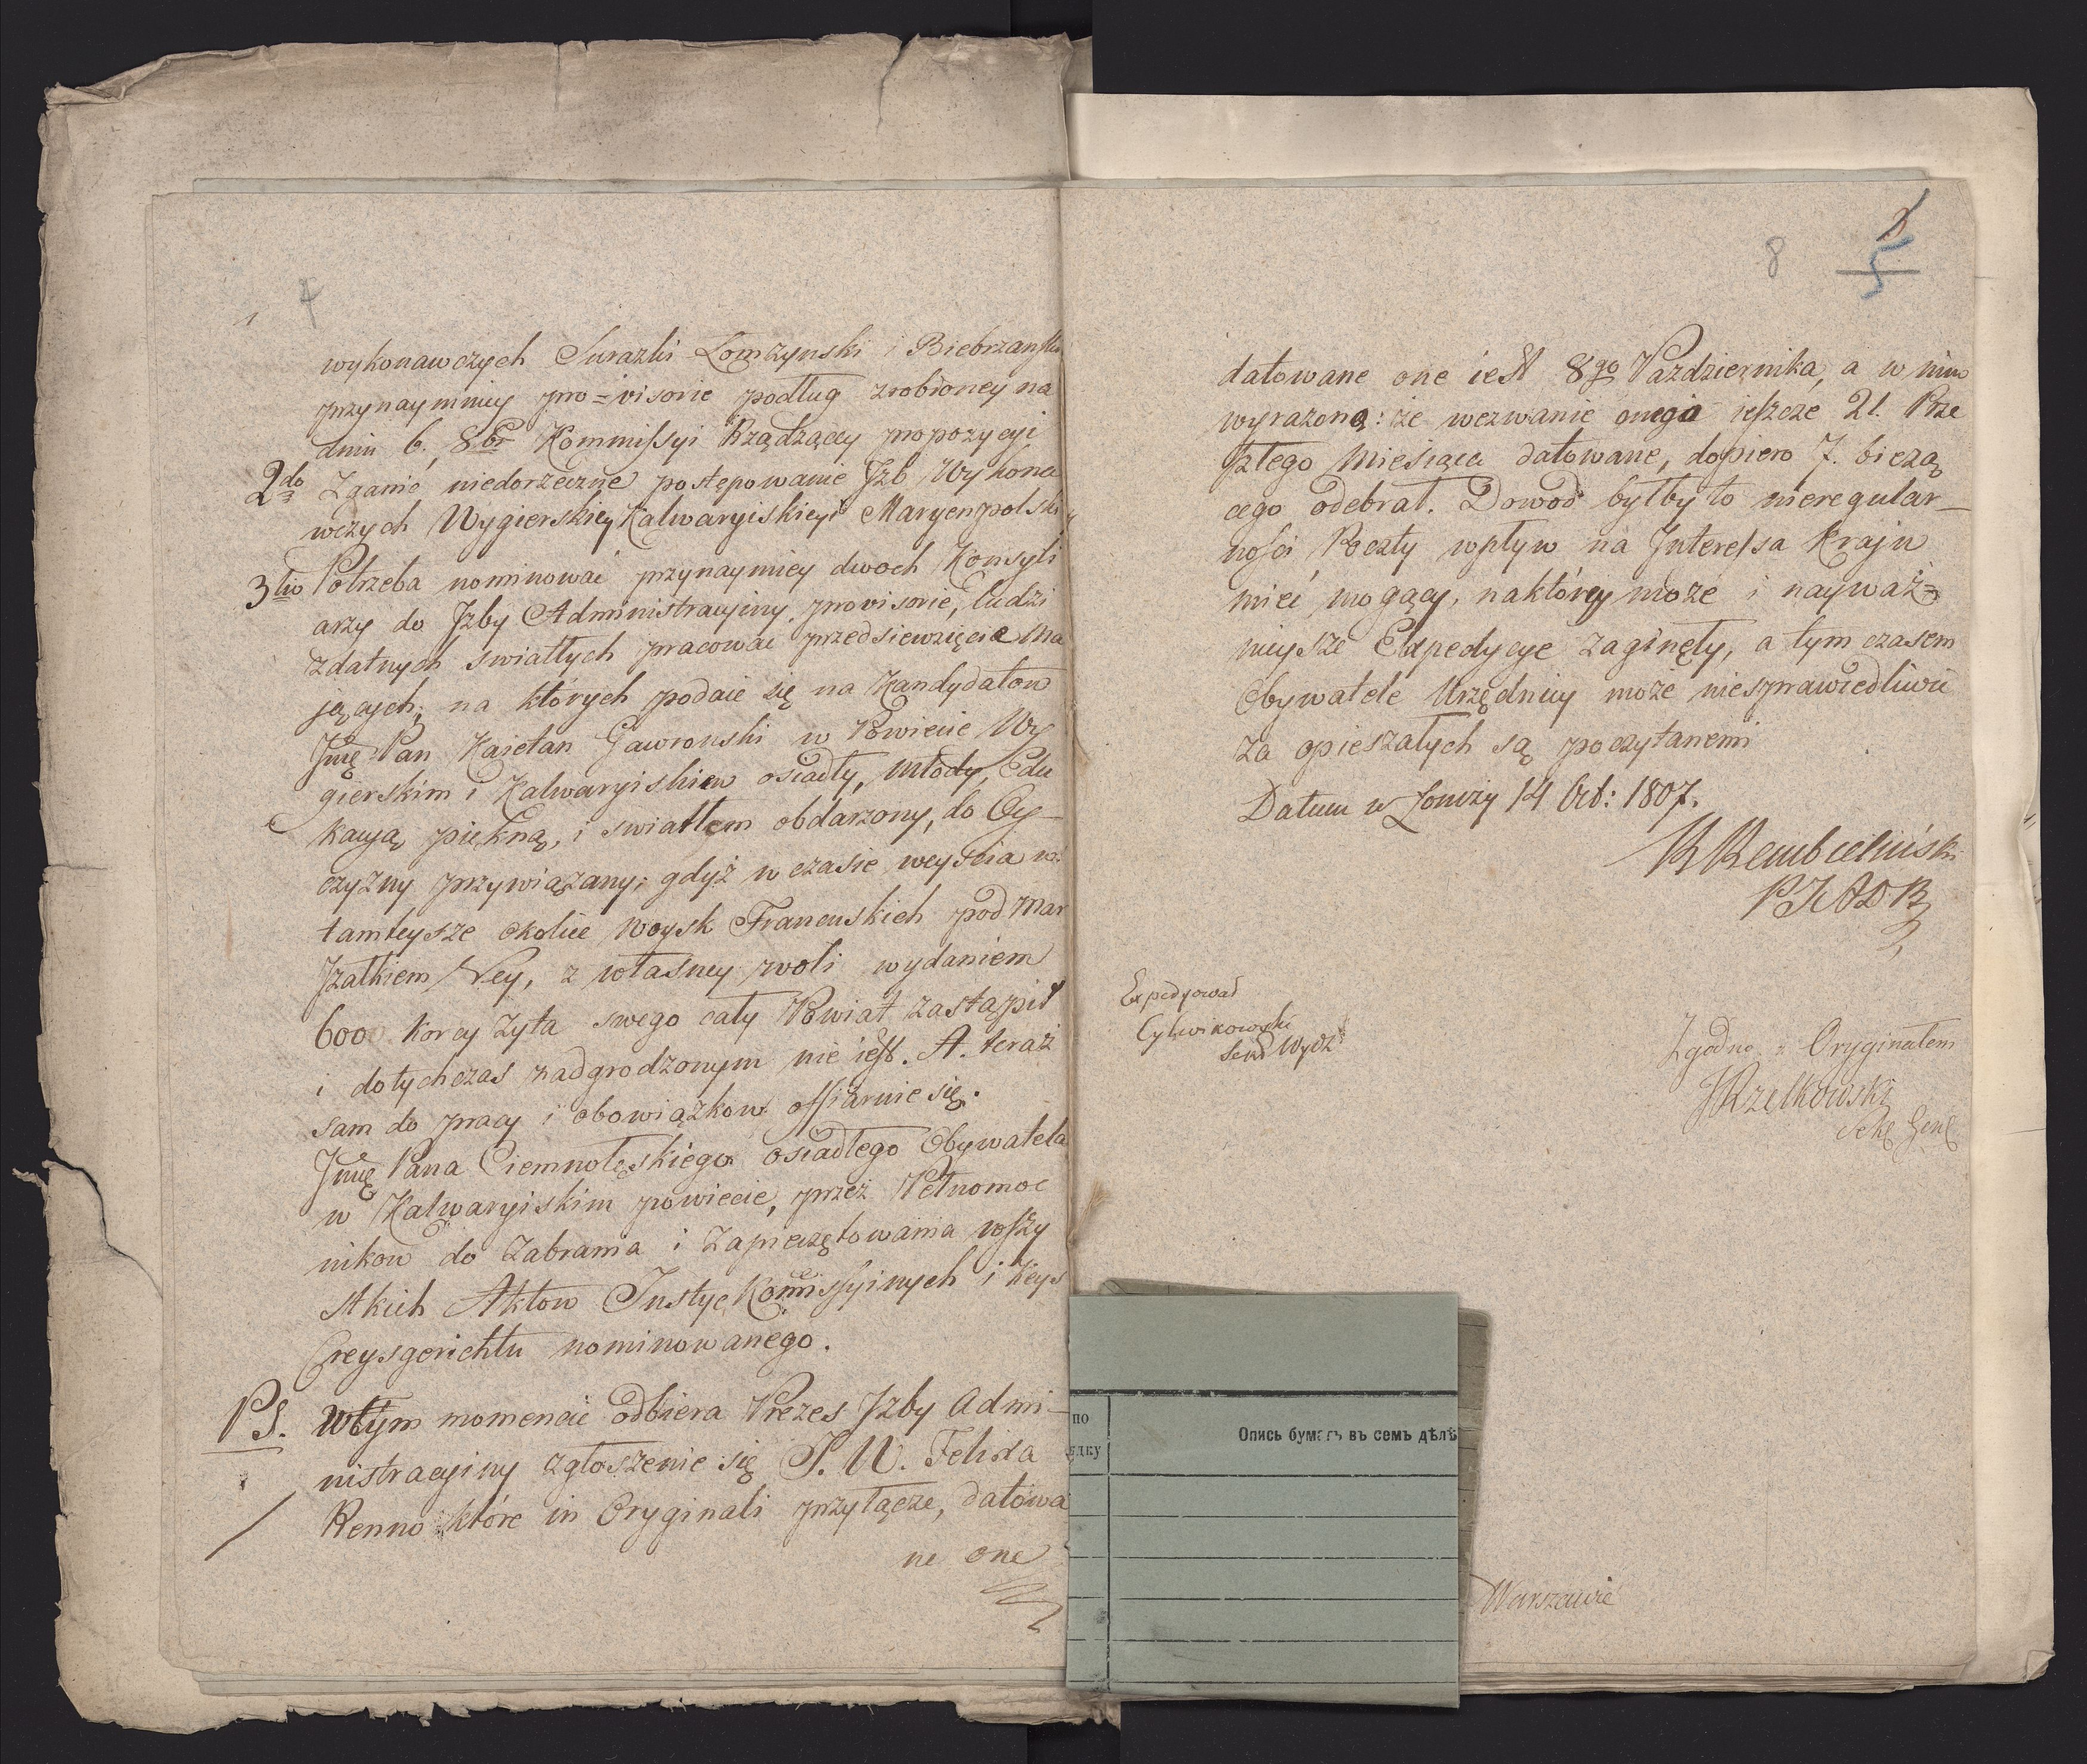 4
wykonawczych Surazki Łomzynski i Biebrzański
przynaymniey pro=visorie podług zrobioney na
dniu 6. 8br Kommissyi Rządzącey propozycyi
2do Zganić niedorzeczne postępowanie Jzb Wykona
wczych Wygierskiey Kalwaryiskiey i Maryenpolski
3tio Potrzeba nominować przynaymiey dwoch Konsyli
arzy do Jzby Administracyiny, provisorie, ludzi
zdatnych swiatłych pracować przedsiewzięcie ma
jących; na których podaie się na Kandydatow
Jmę Pan Kaietan Gawronski w Powiecie Wy
gierskim i Kalwaryiskim osiadły, młody, Edu
kacyą piękną, i swiatłem obdarzony, do Oy-
czyzny przywiązany; gdyż w czasie weyścia w
tamteysze okolice Woysk Francuskich pod Mar
szałkiem Ney, z własney woli wydaniem
600 korcy Zyta swego cały Powiat zastąpił
i dotychczas nadgrodzonym nie iest. A teraz
sam do pracy i obowiązkow offiaruie się.
Jmę Pana Ciemnołęskiego osiadłego Obywatela
w Kalwaryiskim powiecie, przez Pełnomoc
nikow do Zabrania i Zapieczętowania wszy
stkich Aktow Justyc Komissyinych i Keys
Creysgerichtu nominowanego.
PS. Wtym momencie odbiera Prezes Jzby Admi-
nistracyiny zgłoszenie się J. W. Felixa
Renno które in Oryginali przyłącze, datowa
ne one
8
5
datowane one iest 8go Pazdziernika, a w nim
wyrazono: że wezwanie onego ieszcze 21. Prze
szłego Miesiąca datowane, dopiero 7. bieżą
cego odebrał. Dowod byłby to nieregular-
ności Poczty wpływ na Interessa Kraju
mieć mogący, naktórey może i nayważ=
nieysze Expedycye zaginęły, a tym czasem
Obywatele Urzędnicy może niesprawiedliwie
za opieszałych są poczytanemi
Datum w Łomży 14 Oct: 1807.
R Rembieliński
P J A D B
Expedyował
Cylwikowski
Sekr Wydz
Zgodno z Oryginałem
JRzętkowski
Sekr Genl
по
ядку
Опись бумагъ въ семъ дѣлѣ
Warszawie